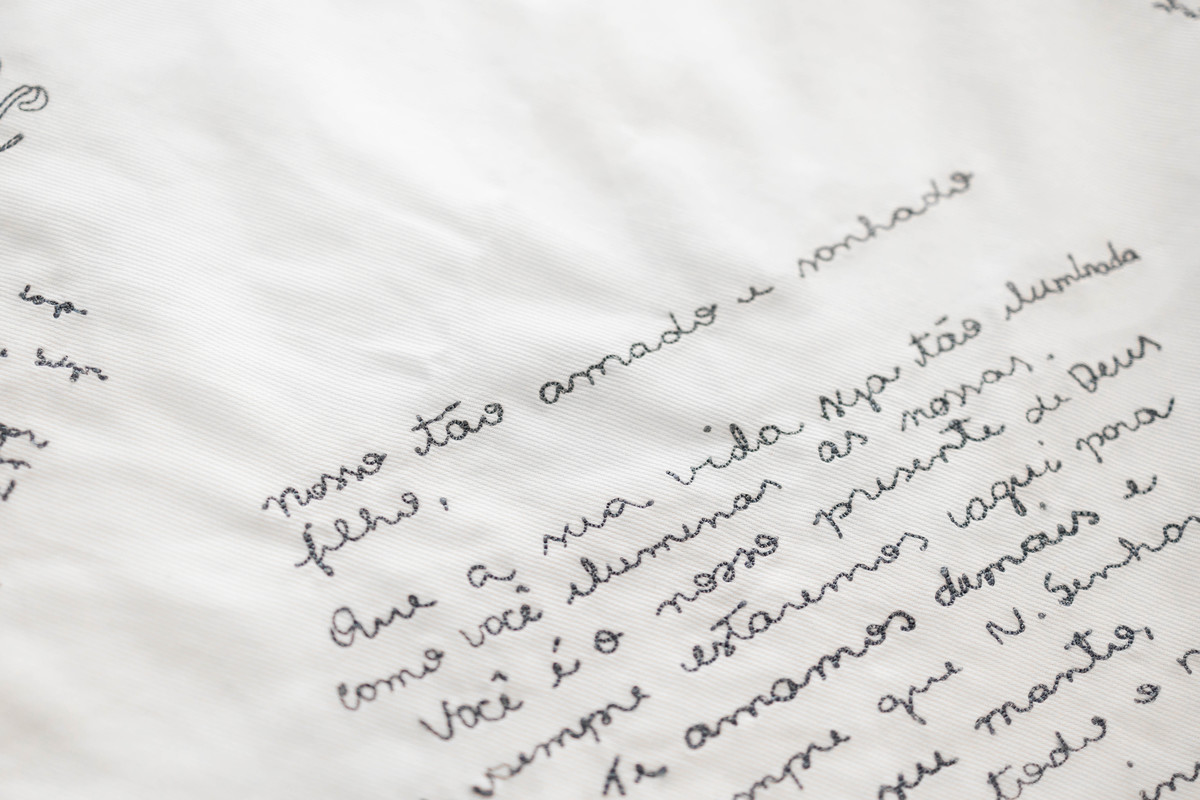 nosso tão amado e sonhado
filho,
Que a sua vida seja tão iluminada
como você iluminas as nossas.
Você é o nosso presente de Deus
sempre estaremos aqui para
Te amamos demais e
que N. Senhora
seu manto,
todo o